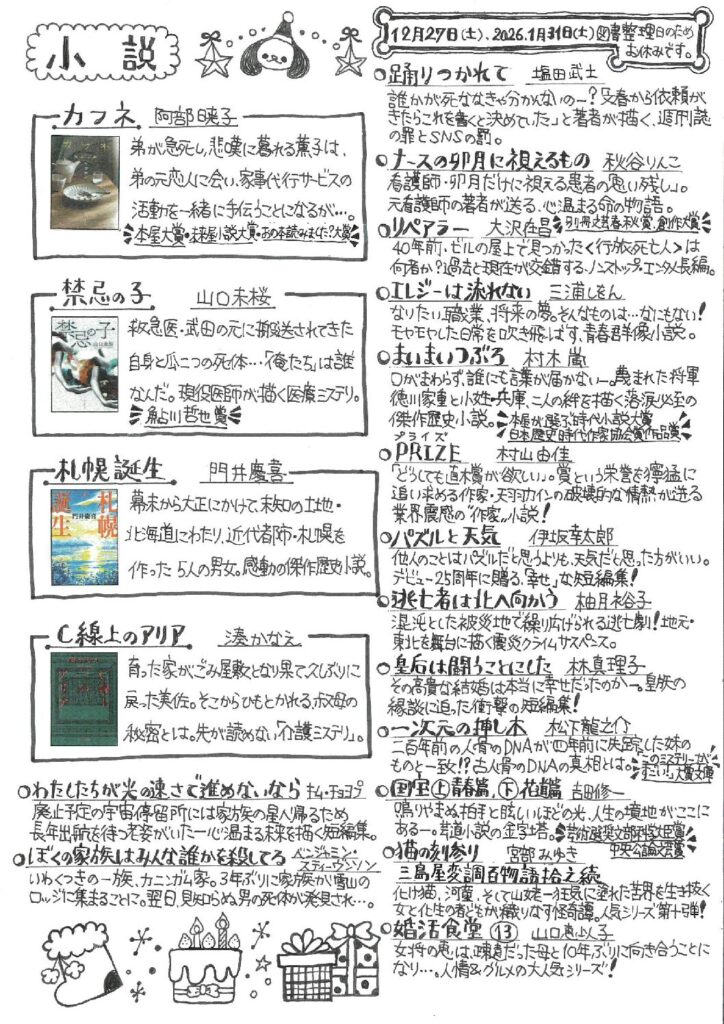 小説
12月27日(土)、2026.1月31日(土)図書整理日のため
お休みです。
カフネ 阿部暁子
弟が急死し、悲嘆に暮れる薫子は、
弟の元恋人に会い、家事代行サービスの
活動を一緒に手伝うことになるが…。
本屋大賞・未来屋小説大賞・あの本読みました?大賞
禁忌の子 山口未桜
救急医・武田の元に搬送されてきた
自身と瓜二つの死体…「俺たち」は誰
なんだ。現役医師が描く医療ミステリ。
鮎川哲也賞
札幌誕生 門井慶喜
幕末から大正にかけて、未知の土地・
北海道にわたり、近代都市・札幌を
作った5人の男女。感動の傑作歴史小説。
C線上のアリア 湊かなえ
育った家がごみ屋敷となり果て、久しぶりに
戻った美佐。そこからひもとかれる、叔母の
秘密とは。先が読めない「介護ミステリ」。
わたしたちが光の速さで進めないなら キム・チョヨプ
廃止予定の宇宙停留所には家族の星へ帰るため
長年出航を待つ老婆がいた―心温まる未来を描く短編集。
ぼくの家族はみんな誰かを殺してる ベンジャミン・
スティーヴンソン
いわくつきの一族、カニンガム家。3年ぶりに家族が雪山の
ロッジに集まることに。翌日、見知らぬ男の死体が発見され…。
踊りつかれて 塩田武士
誰かが死ななきゃ分かんないの―?「文春から依頼が
きたらこれを書くと決めていた」と著者が描く、週刊誌
の罪とSNSの罰。
ナースの卯月に視えるもの 秋谷りんこ
看護師・卯月だけに視える患者の「思い残し」。
元看護師の著者が送る、心温まる命の物語。
別冊文藝春秋賞、創作大賞
リペアラー 大沢在昌
40年前、ビルの屋上で見つかった<行旅死亡人>は
何者か?過去と現在が交錯する、ノンストップ・エンタメ長編。
エレジーは流れない 三浦しをん
なりたい職業、将来の夢。そんなものは…なにもない!
モヤモヤした日常を吹き飛ばす、青春群像小説。
まいまいつぶろ 村木嵐
口がまわらず、誰にも言葉が届かない―。蔑まれた将軍
徳川家重と小姓・兵庫、二人の絆を描く落涙必至の
傑作歴史小説。
本屋が選ぶ時代小説大賞
日本歴史時代作家協会賞作品賞
プライズ
PRIZE 村山由佳
「どうしても直木賞が欲しい」。賞という栄誉を獰猛に
追い求める作家・天羽カインの破壊的な情熱が迸る
業界震感の"作家"小説!
パズルと天気 伊坂幸太郎
他人のことはパズルだと思うよりも、天気だと思った方がいい。
デビュー25周年に贈る、「幸せ」な短編集!
逃亡者は北へ向かう 柚月裕子
混沌とした被災地で繰り広げられる逃亡劇!地元・
東北を舞台に描く震災クライムサスペンス。
皇后は闘うことにした 林真理子
その高貴な結婚は本当に幸せだったのか―。皇族の
縁談に迫った衝撃の短編集!
一次元の挿し木 松下龍之介
二百年前の人骨のDNAが四年前に失踪した妹の
ものと一致!?古人骨のDNAの真相とは。
このミステリーが
すごい!大賞文庫
国宝 上青春篇、下花道篇 吉田修一
鳴りやまぬ拍手と眩しいほどの光、人生の境地がここに
ある―。芸道小説の金字塔。
芸術選奨文部科学大臣賞
中央公論文芸賞
猫の刻参り 宮部みゆき
三島屋変調百物語拾之続
化け猫、河童、そして山姥―狂気に塗れた苦界を生き抜く
女と化生の者どもが織りなす怪奇譚。人気シリーズ第十弾!
婚活食堂 13 山口恵以子
女将の恵は、疎遠だった母と10年ぶりに向き合うことに
なり…。人情&グルメの大人気シリーズ!